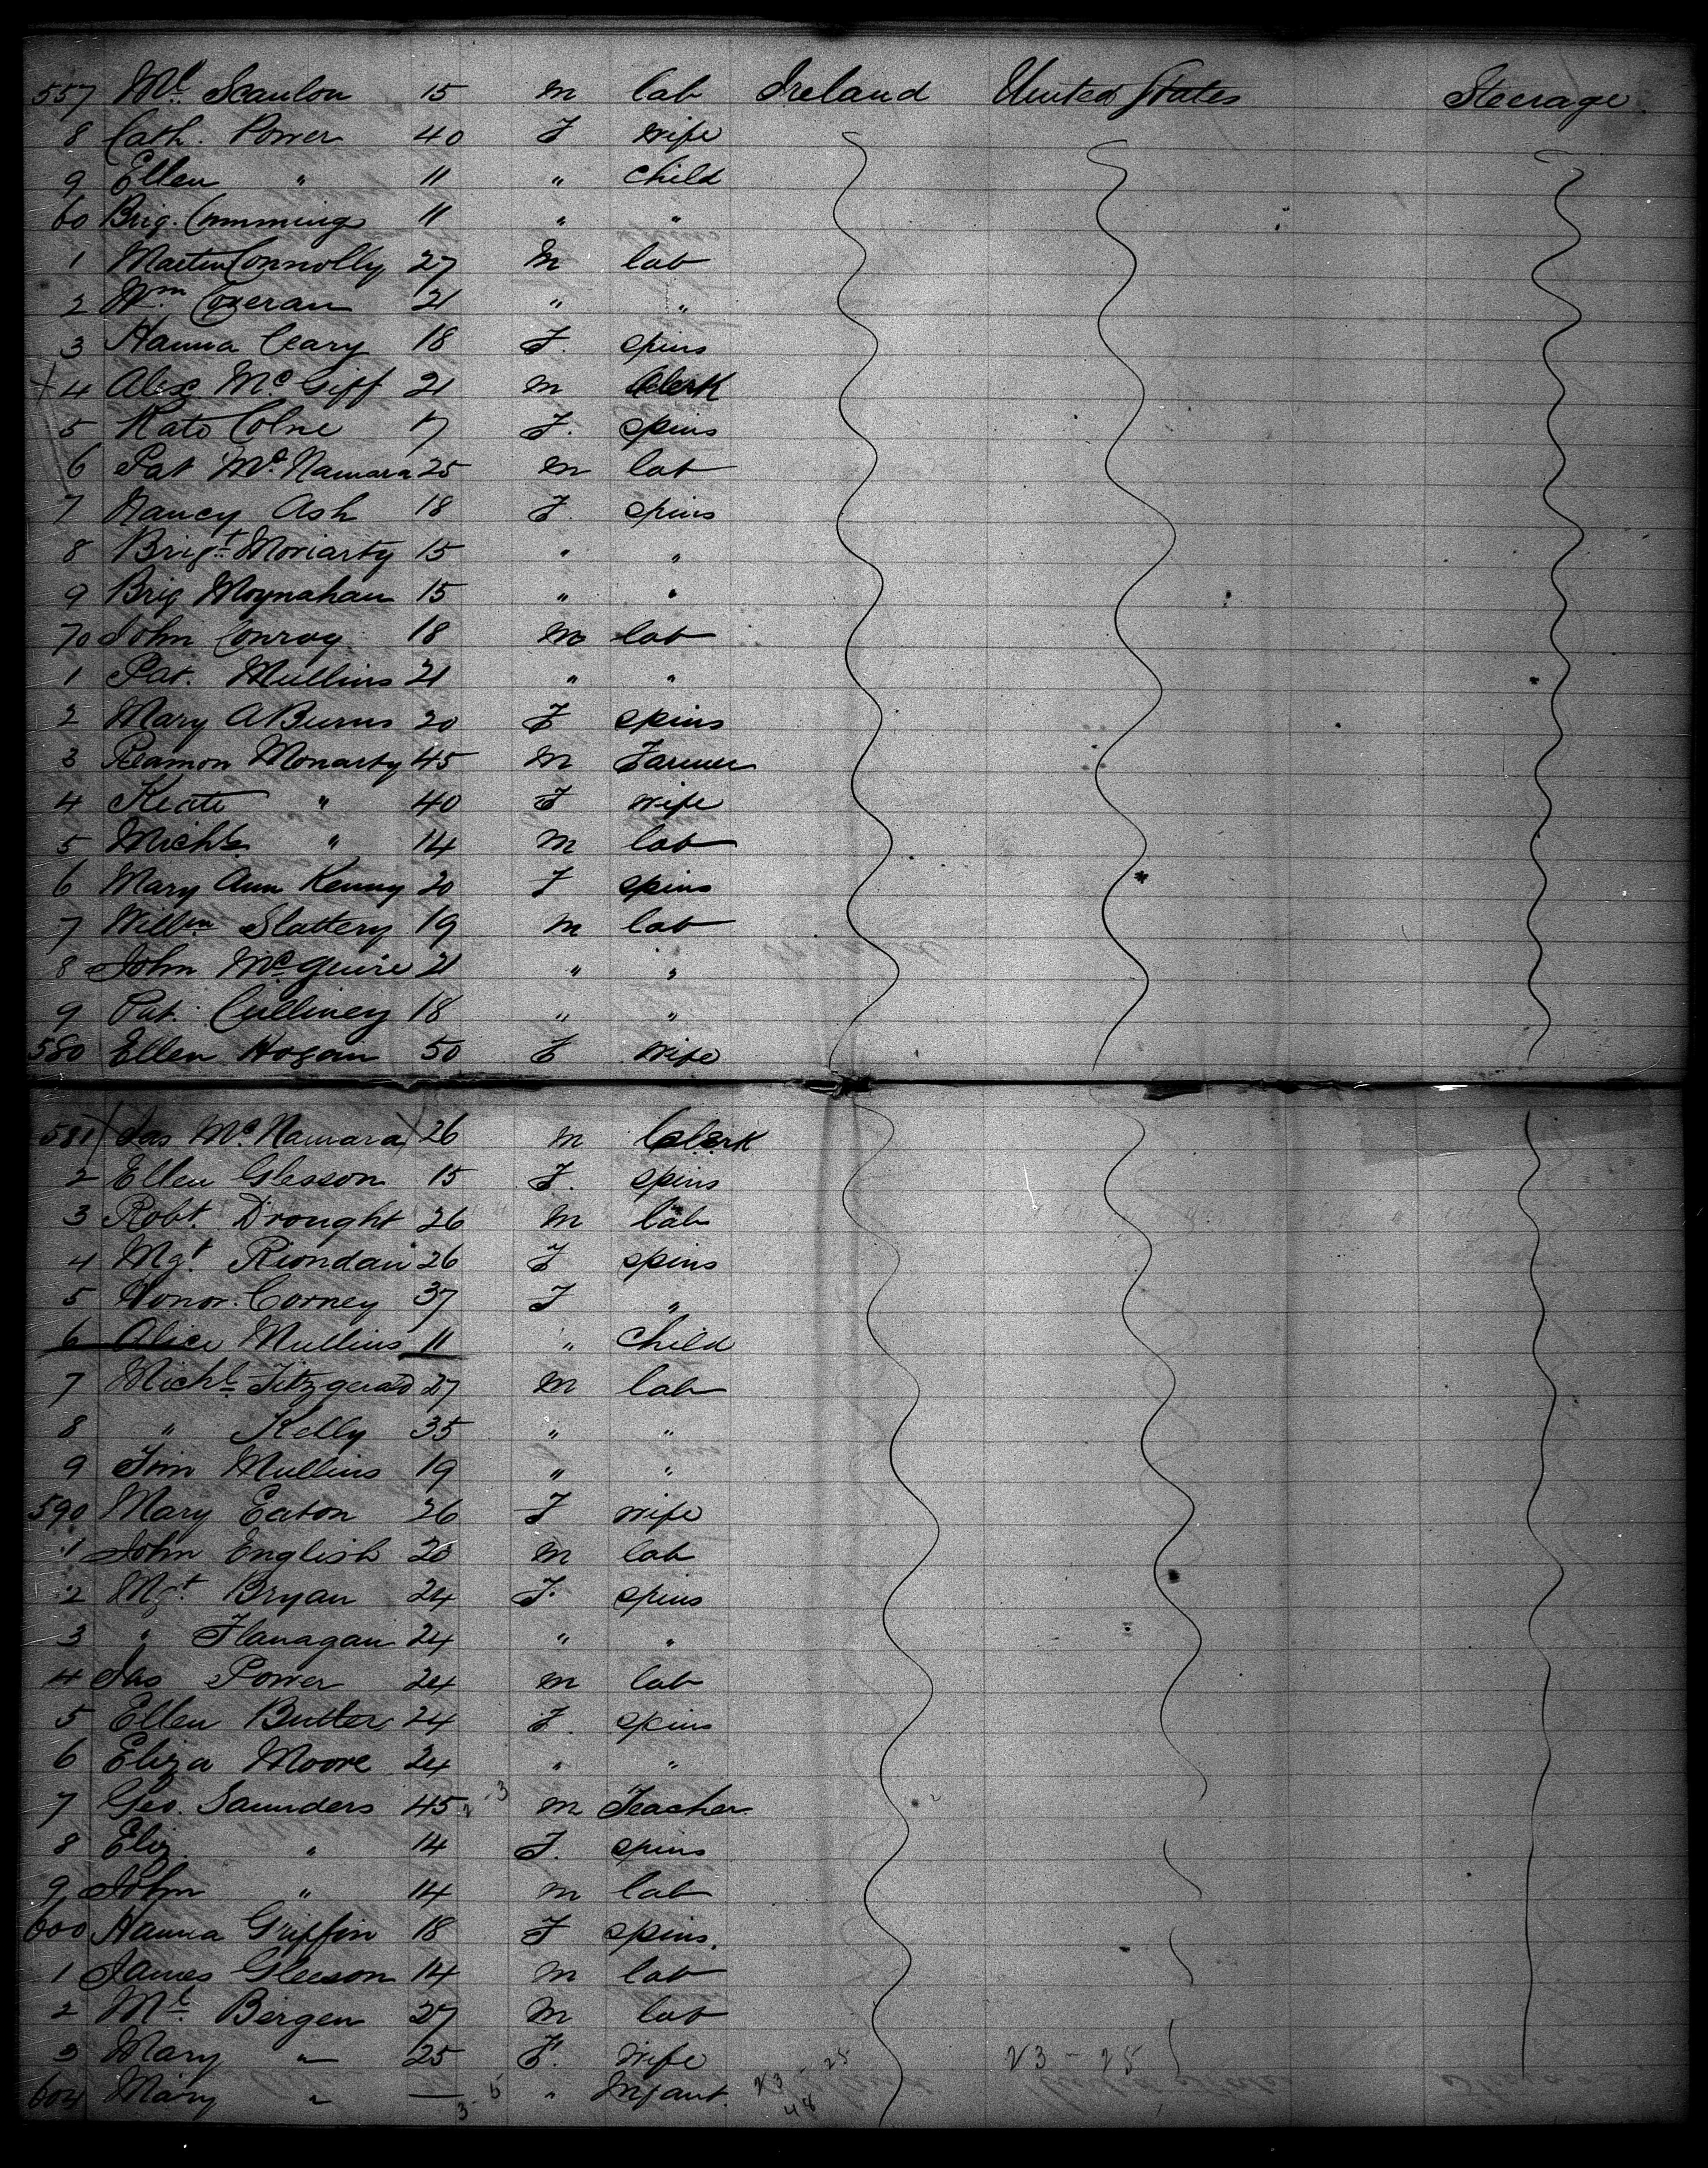 557 Ml Scanlon 15 m lab Ireland United States Steerage
8 Cath. Power 40 F wife
9 Ellen " 11 " child
60 Brig. Cumming 11 " "
1 Martin Connolly 27 m lab
2 Wm Coxeran 21 " "
3 Hanna Cleary 18 F. spins
4 Alex Mc Giff 21 m Clerk
5 Kate Colne 17 F. spins
6 Pat Mc Namara 25 m lab
7 Nancy Ash 18 F. spins
8 Brigt Moriarty 15 " "
9 Brig Moynahan 15 " "
70 John Conroy 18 m lab
1 Pat. Mullins 21 " "
2 Mary A Burns 20 F spins
3 Reamon Monarty 45 m Farmer
4 Keate " 40 F wife
5 Michl " 14 m lab
6 Mary Ann Kenny 20 F spins
7 Willm Slattery 19 m lab
8 John McGuire 21 " "
9 Pat. Culliney 18 " "
580 Ellen Hogan 50 F wife
581 Jas Mc Namara 26 m Clerk
2 Ellen Glesson 15 F. spins
3 Robt. Drought 26 m lab
4 Mgt Riondan 26 F spins
5 Honor. Corney 37 F "
6 Alice Mullins 11 " child
7 Michl Fitzgerald 27 m lab
8 " Kelly 35 " "
9 Tim Mullins 19 " "
590 Mary Eaton 26 F wife
1 John English 20 m lab
2 Mgt Bryan 24 F. spins
3 " Flanagan 24 " "
4 Jas Power 24 m lab
5 Ellen Butler 24 F. spins
6 Eliza Moore 24 " "
7 Geo. Saunders 45 m Teacher
8 Eliz. " 14 F. spins
9 John " 14 m lab
600 Hanna Griffin 18 F spins.
1 James Gleeson 14 m lab
2 Ml Bergen 27 m lab
3 Mary " 25 F. wife 23 - 25
604 Mary " — " Infant.